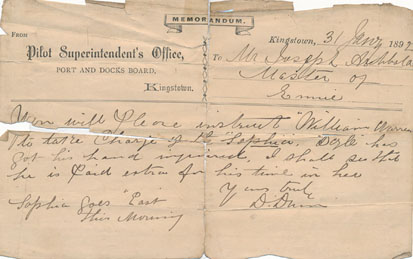 MEMORANDUM.
FROM
Pilot Superintendent's Office,
PORT AND DOCKS BOARD,
Kingstown.
Kingstown, 31 Jany 189
To Mr. Joseph Archbold
Master of
Ennie
You will please instruct William Warren
to take Charge of the "Sophia", Doyle has
got his hand injured, I shall see that
he is paid extra for his time in her
Yours truly
Sophia goes "East"
This Morning